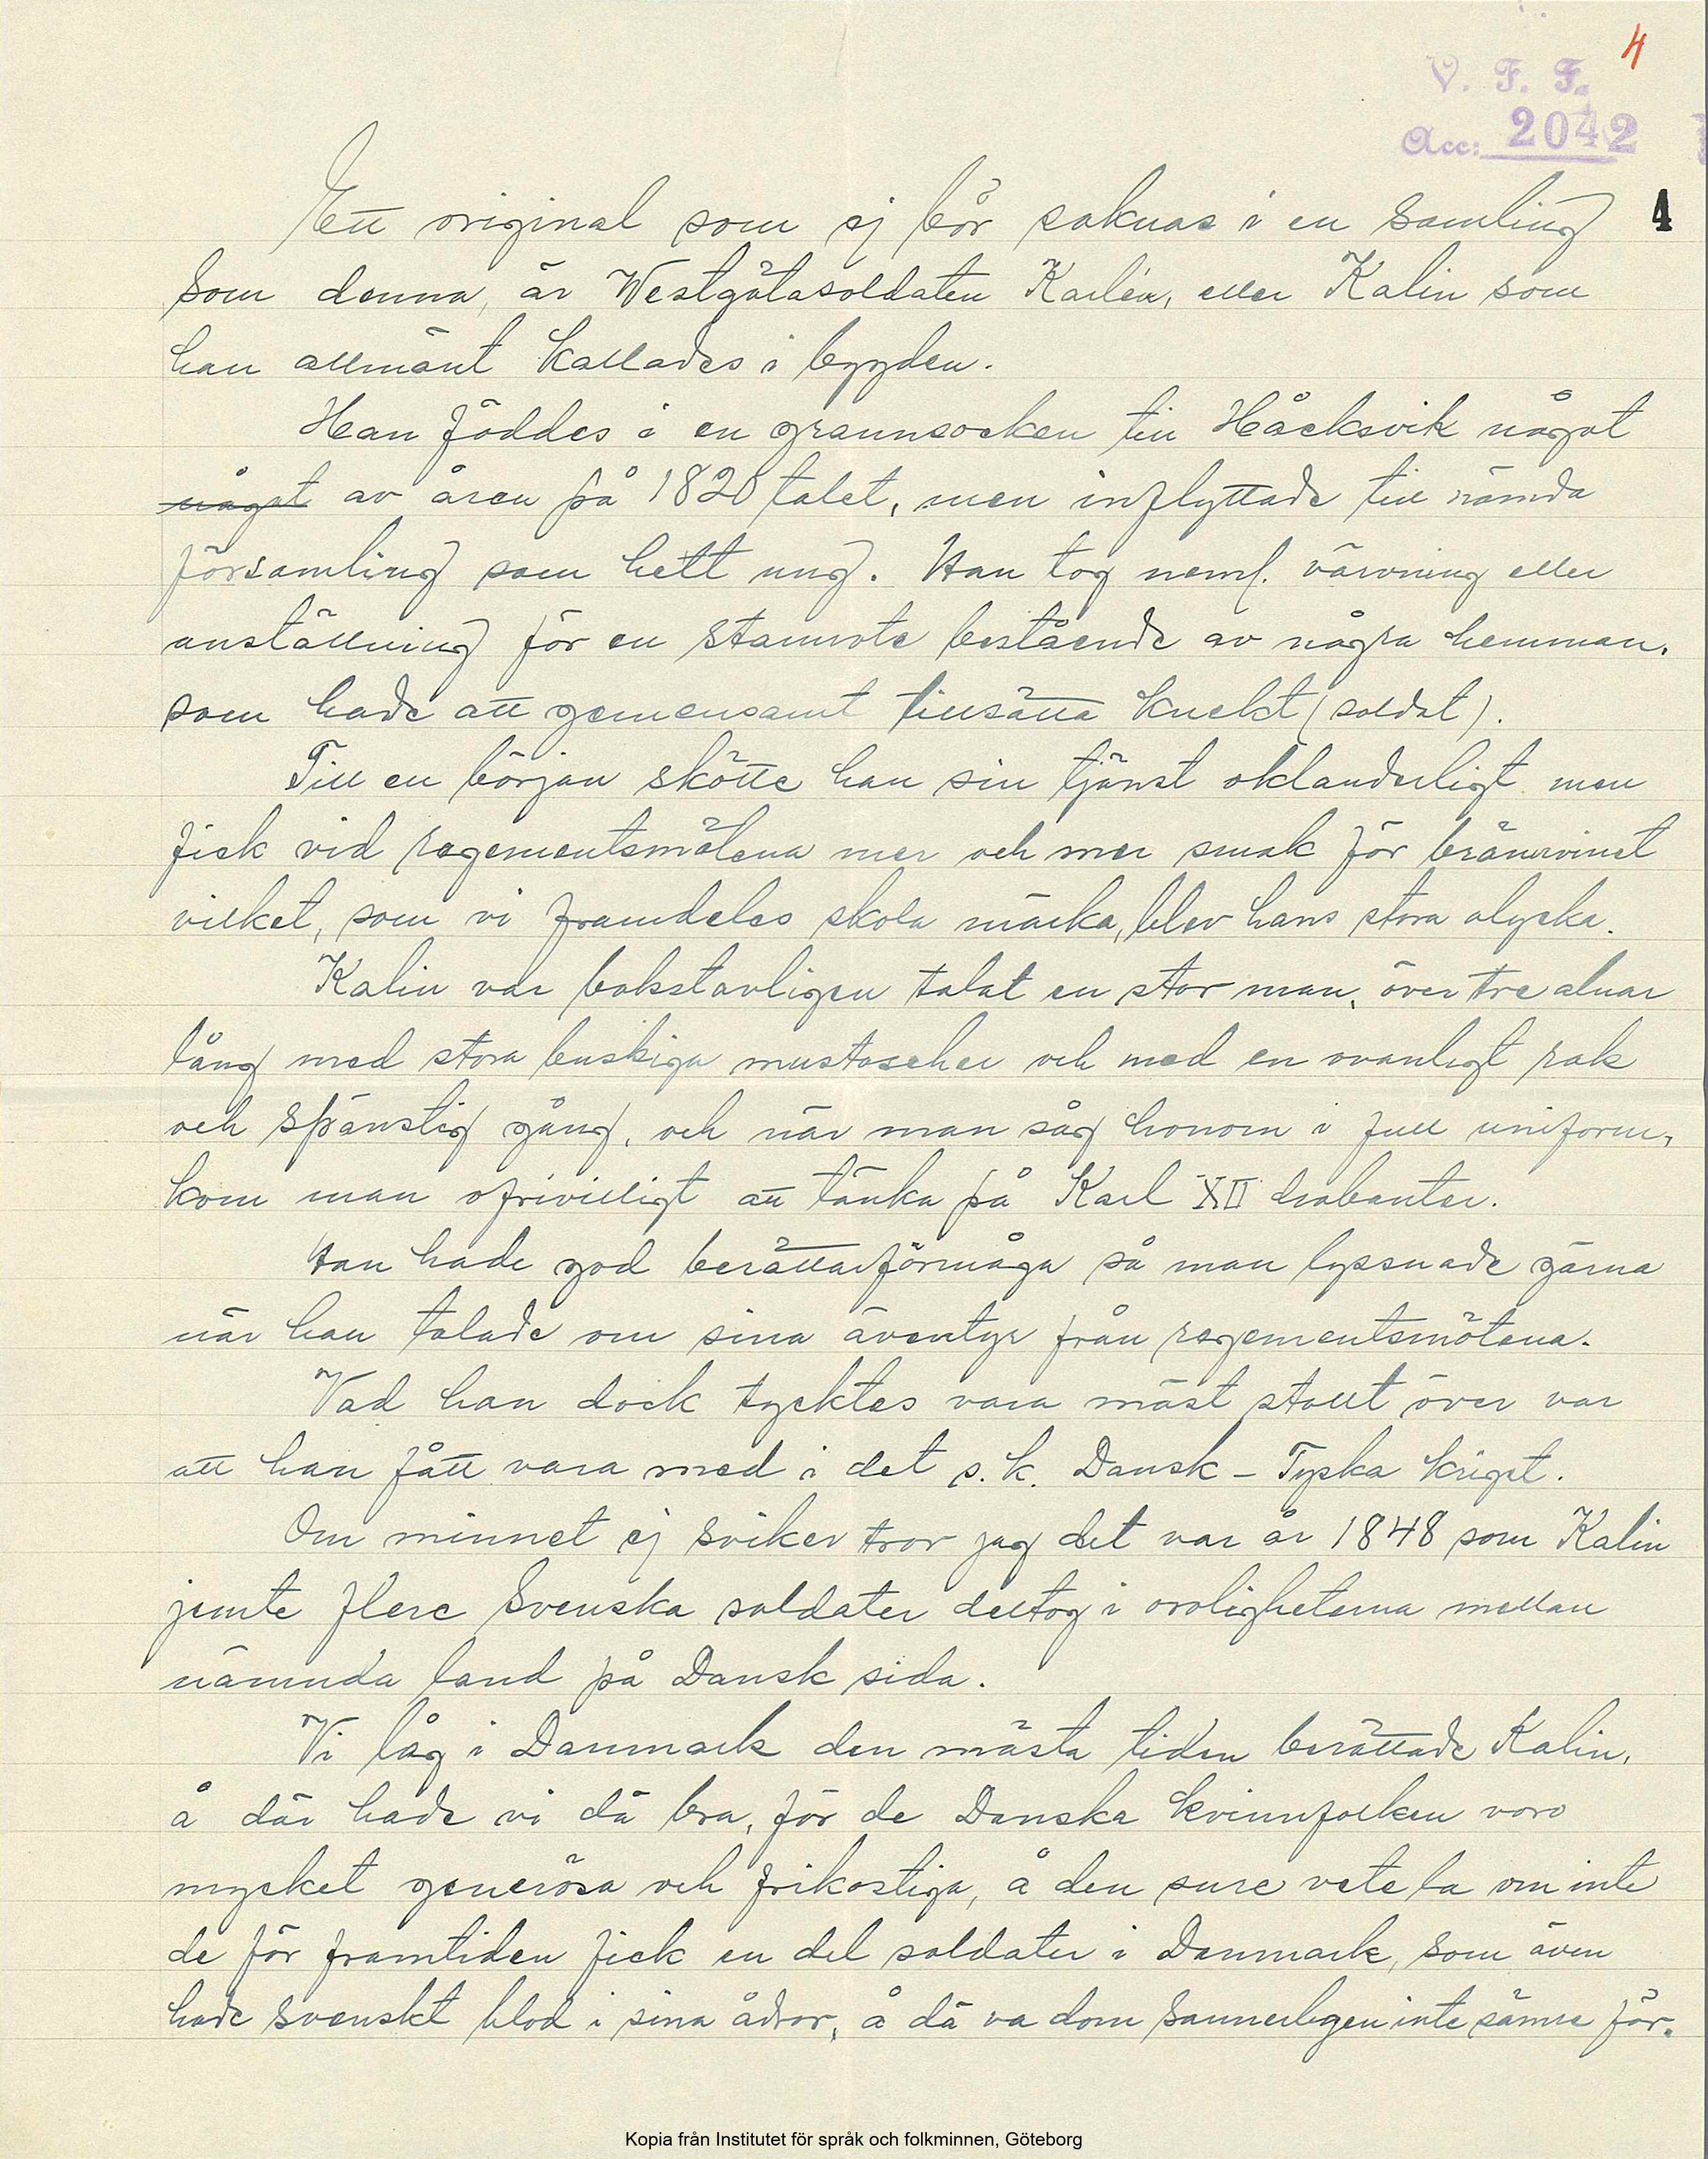 4
V. F. F.
Acc: 2042
4
Ett original som ej bör saknas i en samling
som denna, är Westgötasoldaten Karlén, eller Kalin som
han allmänt kallades i bygden.
Han föddes i en grannsocken till Håcksvik något
något av åren på 1820 talet, men inflyttade till nämda
församling som helt ung. Han tog neml. värvning eller
anställning för en stamrote bestående av några hemman,
som hade att gemensamt tillsätta knekt (soldat).
Till en början skötte han sin tjänst oklanderligt men
fick vid regementsmötena mer och mer smak för bränvinet
vilket, som vi framdeles skola märka, blev hans stora olycka.
Kalin var bokstavligen talat en stor man, över tre alnar
lång med stora buskiga mustascher och med en ovanligt rak
och spänstig gång, och när man såg honom i full uniform,
kom man ofrivilligt att tänka på Karl XII drabanter.
Han hade god berättarförmåga så man lyssnade gärna
när han talade om sina äventyr från regementsmötena.
Vad han dock tycktes vara mäst stollt över var
att han fått vara med i det s.k. Dansk-Tyska kriget.
Om minnet ej sviker tror jag det var år 1848 som Kalin
jemte flere Svenska soldater deltog i oroligheterna mellan
nämnda land på Dansk sida.
Vi låg i Danmark den mästa tiden berättade Kalin,
å där hade vi dä bra, för de Danska kvinnfolken voro
mycket generösa och frikostiga, å den sure vete la om inte
de för framtiden fick en del soldater i Danmark, som även
hade svenskt blod i sina ådror, å dä va dom sannerligen inte sämre för.
Kopia från Institutet för språk och folkminnen, Göteborg